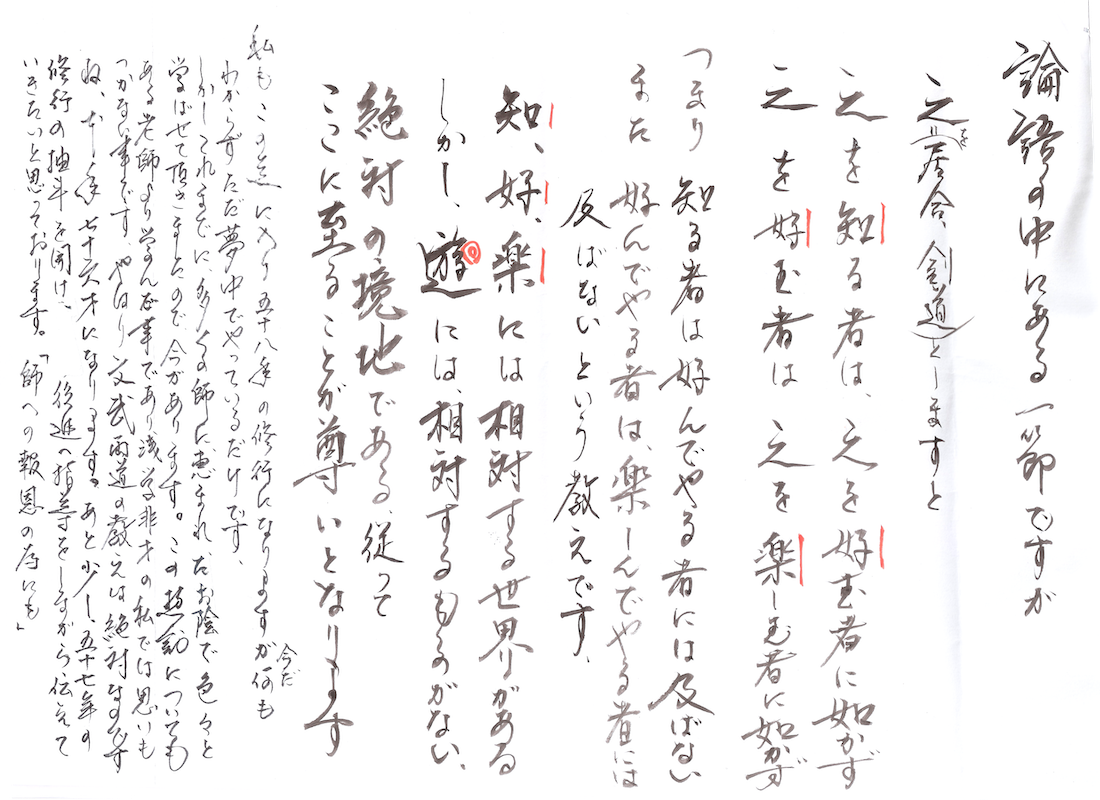 論語の中にある一節ですが
之(居合、剣道)としますと
之を知る者は、之を好む者に如かず
之を好む者は之を楽しむ者に如かず
つまり知る者は好んでやる者には及ばない
また好んでやる者は、楽しんでやる者には
及ばないという教えです、
知、好、楽には相対する世界がある
しかし、遊には、相対するものがない、
絶対の境地である、従って
ここに至ることが尊いとなります
私もこの道に入り五十八年の修行になりますが何も
今だ
わからずただ夢中でやっているだけです、
しかしこれまでに、多くの師に恵まれ、お陰で色々と
学ばせて頂きましたので、今があります。この遊についても
ある老師より学んだ事であり浅学非才の私では思いも
つかない事です。やはり文武両道の教えは絶対なのです
ね、本年七十六才になります。あと少し五十七年の
修行の抽斗を開け、後進へ指導をしながら伝えて
いきたいと思っております。「師への報恩の為にも」